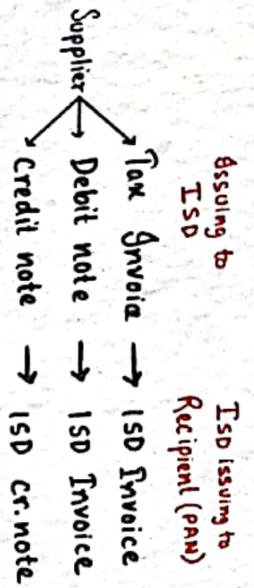 Issuing to
ISD
ISD issuing to
Recipient (PAN)
Supplier
Tax Invoice → ISD Invoice
Debit note → ISD Invoice
Credit note → ISD cr.note